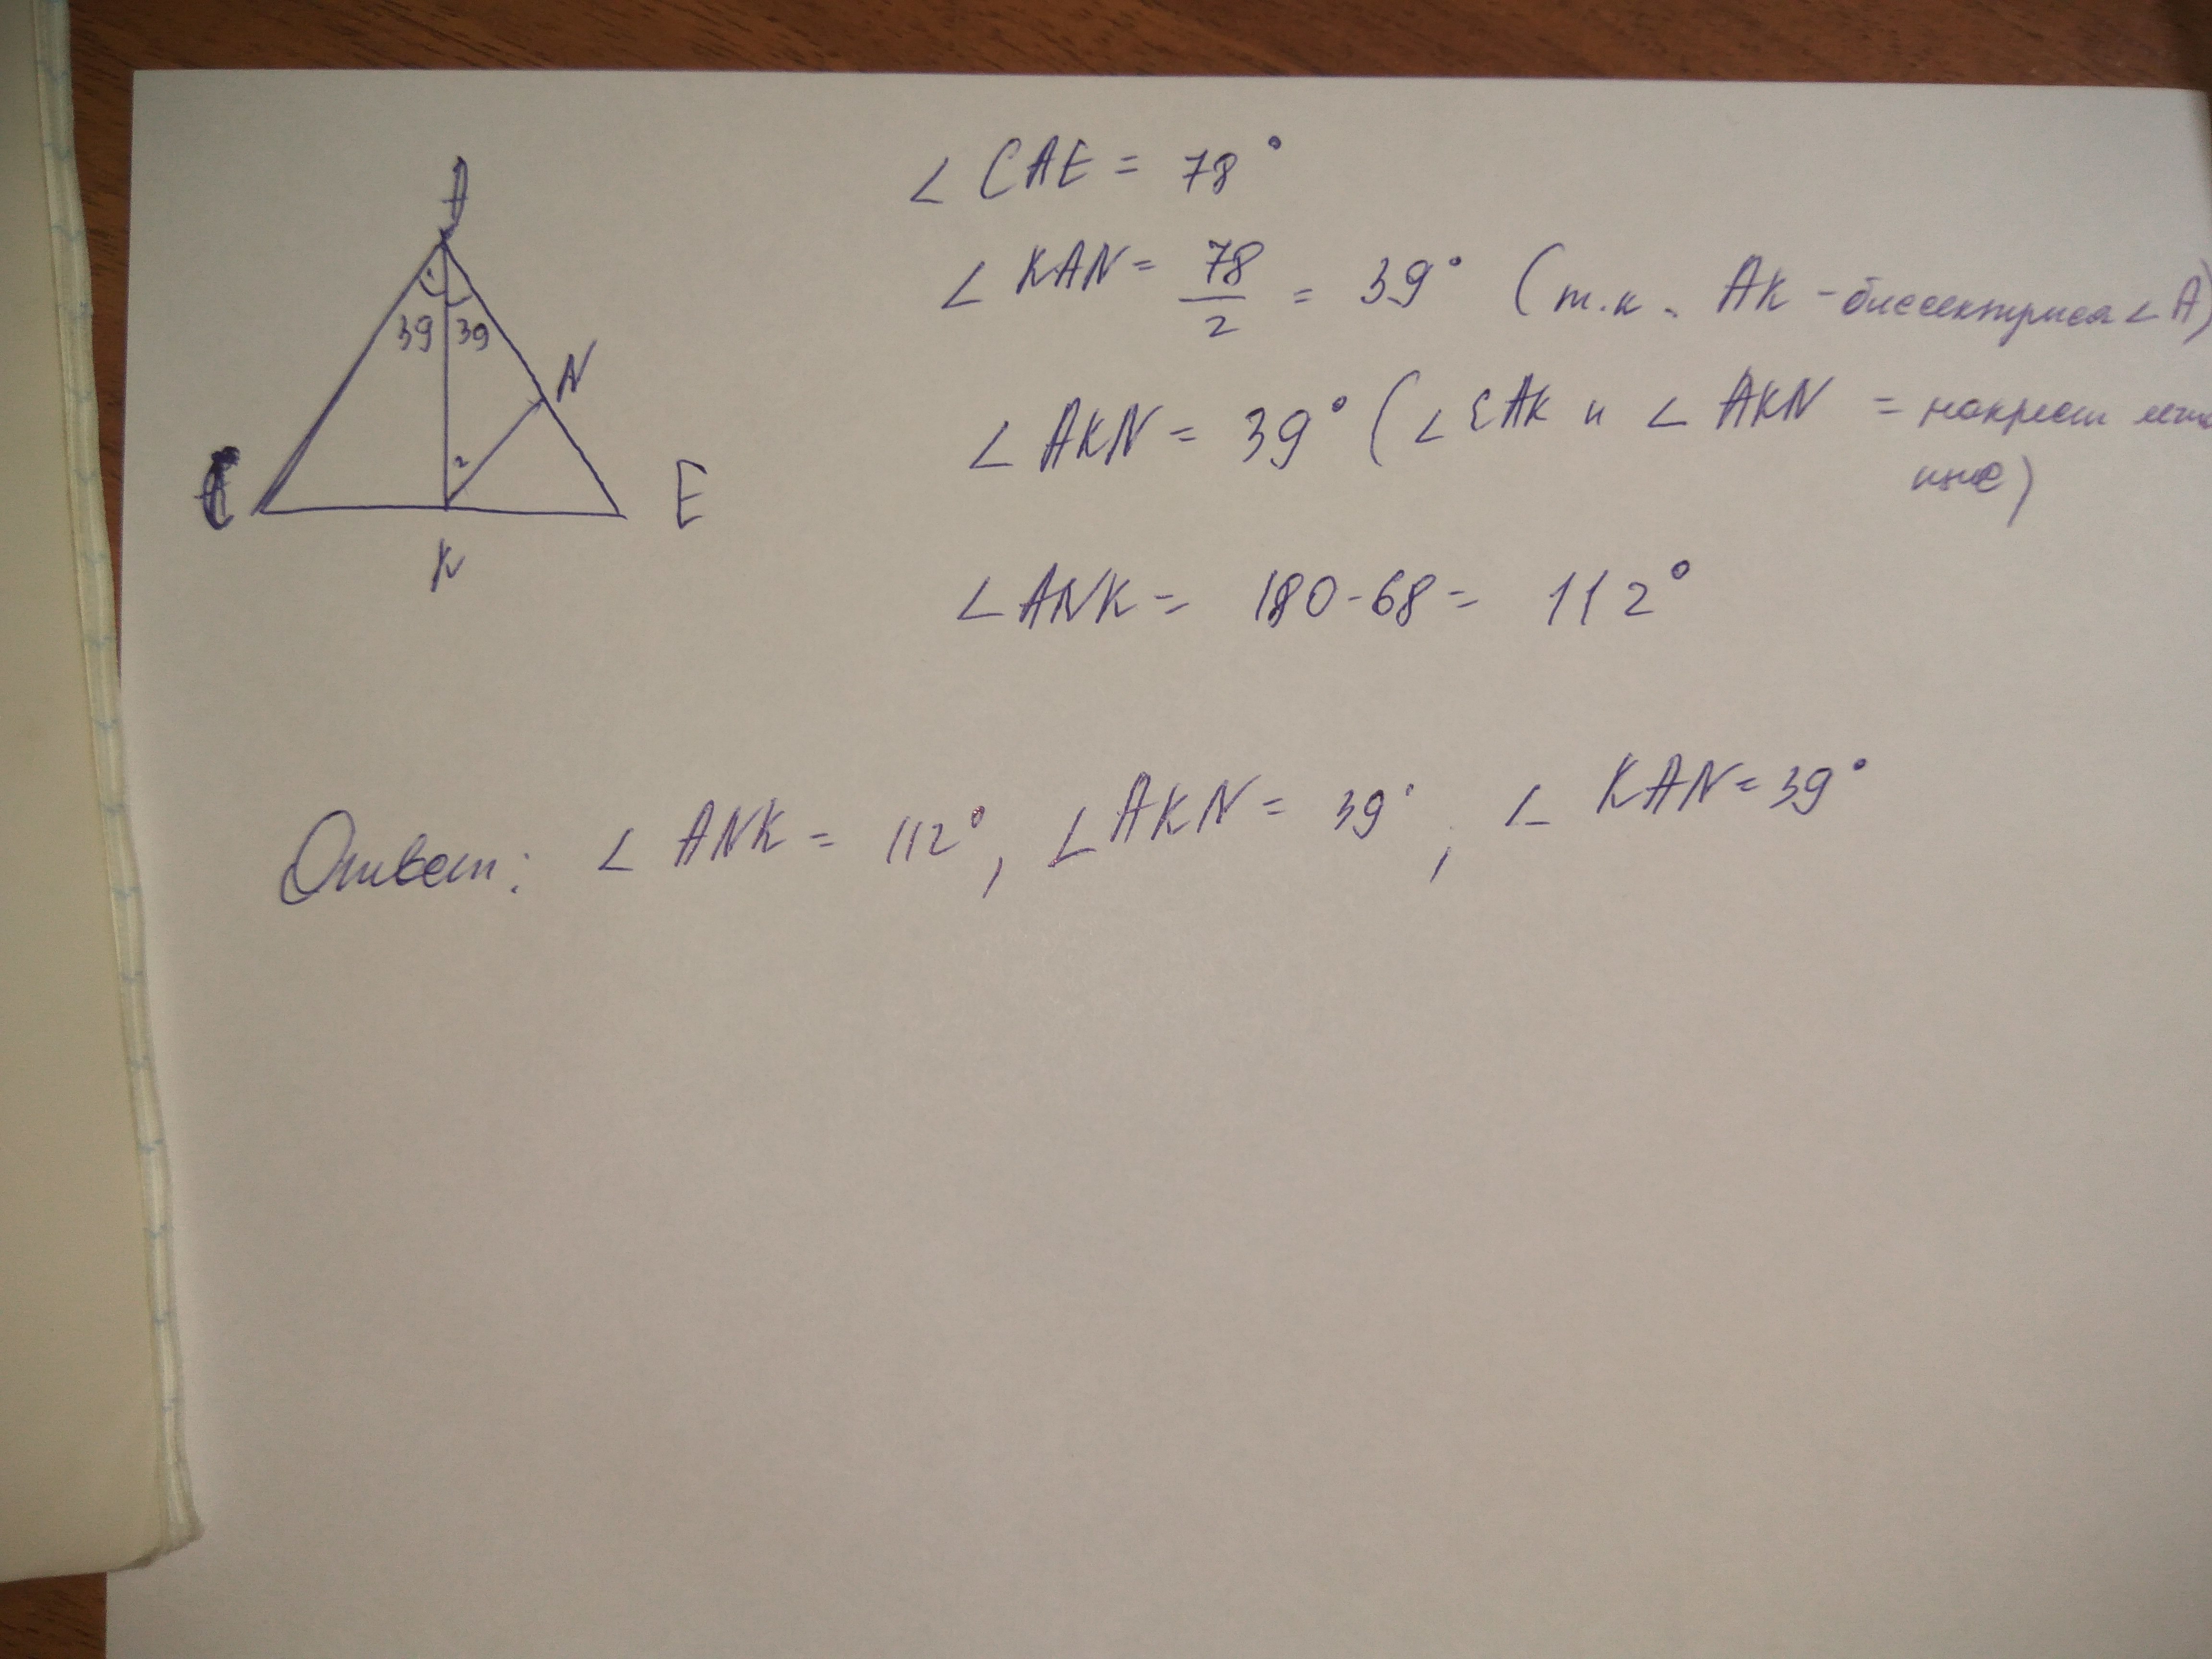 A
39 39
N
2
C
E
K
∠ CAE = 78°
∠ KAN = 78/2 = 39° (т.к. AK - биссектриса ∠A)
∠ AKN = 39° (∠ CAK и ∠ AKN = накрест лежа
щие)
∠ ANK = 180-68= 112°
Ответ: ∠ ANK = 112°, ∠ AKN = 39°, ∠ KAN = 39°